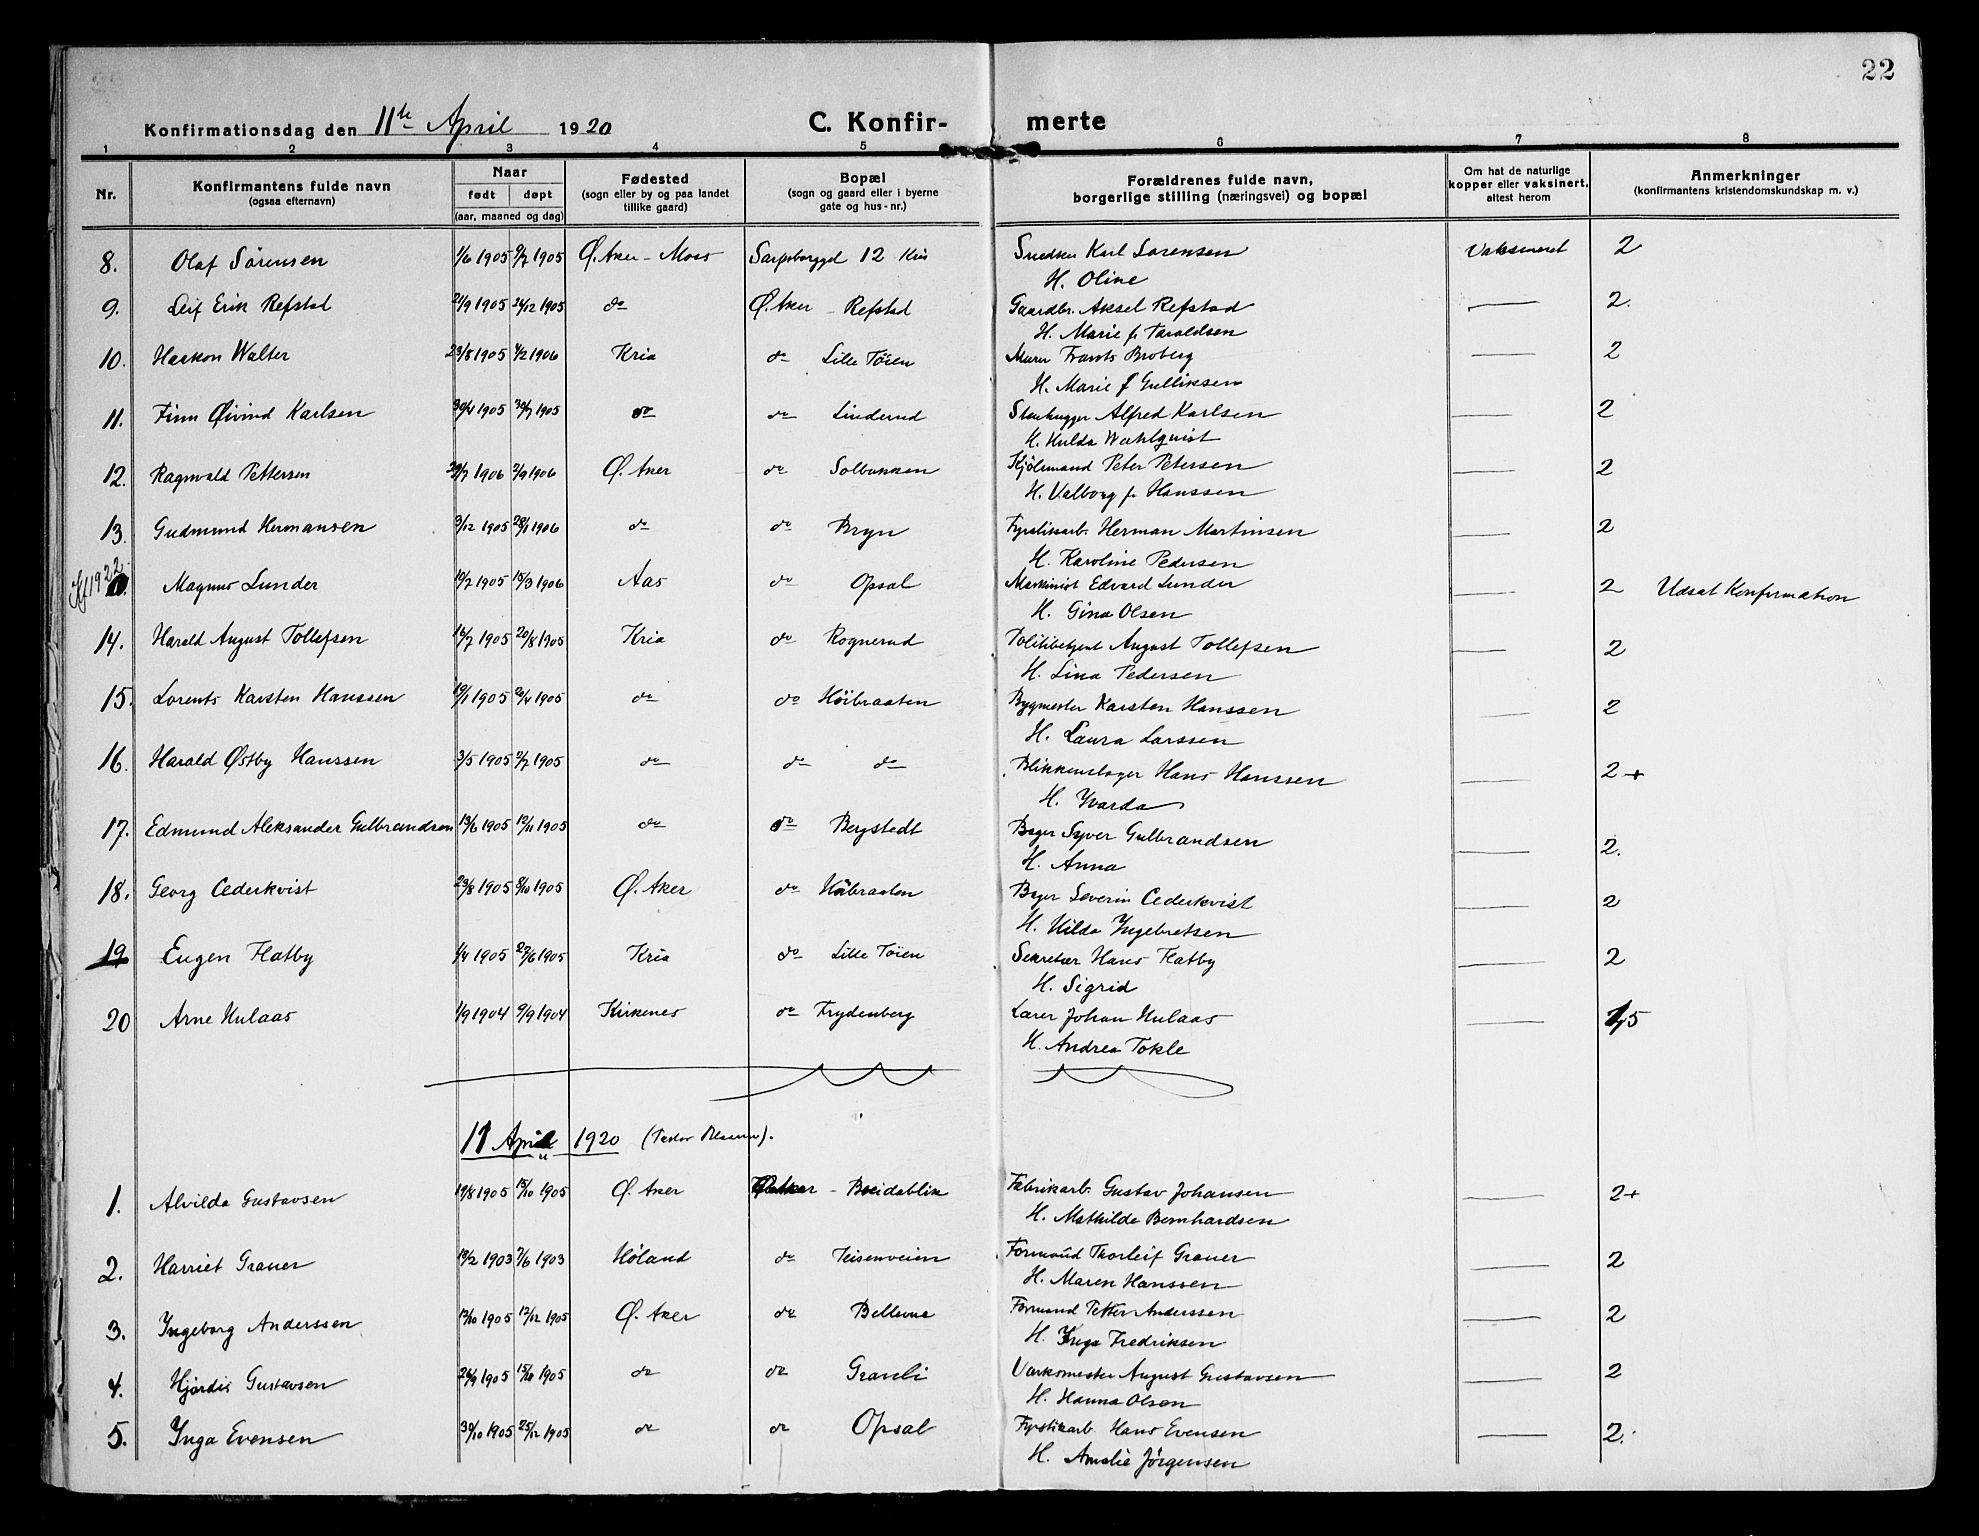 22
Konfirmationsdag den 11te April 1920 C. Konfir- merte
1 2 3 4 5 6 7 8
Nr. Konfirmantens fulde navn (ogsaa efternavn) Naar født døpt (aar, maaned og dag) Fødested (sogn eller by og paa landet tillike gaard) Bopæl (sogn og gaard eller i byerne gate og hus-nr.) Forældrenes fulde navn, borgerlige stilling (næringsvei) og bopæl Om hat de naturlige kopper eller vaksinert, altest herom Anmerkninger (konfirmantens kristendomskundskap m. v.)
8. Olaf Sørensen 1/6 1905 9/7 1905 Ø. Aker - Moss Sarpsborggd 12 Kria Snedker Karl Sørensen Vaksineret 2
H. Oline
9. Leif Erik Refstad 21/9 1905 24/12 1905 do Ø. Aker - Refstad Gaardbr. Aksel Refstad — 2.
H. Marie f. Taraldsen
10. Haakon Walter 23/8 1905 4/2 1906 Kria do Lille Tøien Murer Frants Broberg — 2
H. Marie f Gulliksen
11. Finn Øivind Karlsen 30/4 1905 30/7 1905 do do Linderud Stenhugger Alfred Karlsen — 2
H. Hulda Wahlquist
12. Ragnvald Pettersen 29/7 1906 2/9 1906 Ø. Aker do Solbakken Kjølemand Peter Petersen — 2
H. Valborg f. Hanssen
13. Gudmund Hermansen 3/12 1905 28/1 1906 do do Bryn Fyrstikarb. Herman Martinsen — 2
H. Karoline Pedersen
Kf 1922. Magnus Lunder 10/7 1905 18/3 1906 Aas do Opsal Maskinist Edvard Lunder — 2 Udsat Konfirmation
H. Gina Olsen
14. Harald August Tollefsen 16/7 1905 20/8 1905 Kria do Rognerud Politibetjent August Tollefsen — 2
H. Lina Pedersen
15. Lorents Karsten Hanssen 19/1 1905 20/4 1905 do do Høibraaten Bygmester Karsten Hanssen — 2
H. Laura Larssen
16. Harald Østby Hanssen 3/5 1905 2/7 1905 do do do Blikkenslager Hans Hanssen — 2+
H. Yvarda
17. Edmund Aleksander Gulbrandsen 13/6 1905 12/11 1905 do do Bergstedt Bager Syver Gulbrandsen — 2.
H. Anna
18. Georg Cederkvist 23/8 1905 8/10 1905 Ø. Aker do Høibraaten Bager Severin Cederkvist — 2
H. Hilda Yngebretsen
19 Eugen Flatby 1/4 1905 22/6 1905 Kria do Lille Tøien Sekretær Hans Flatby — 2
H. Sigrid
20 Arne Hulaas 1/9 1904 9/9 1904 Kirkenes do Frydenberg Lærer Johan Hulaas — 1,5
H. Andrea Tokle
11 April 1920
1. Alvilda Gustavsen 19/8 1905 15/10 1905 Ø. Aker Ø. Aker - Breidablik Fabrikarb. Gustav Johansen — 2+
H. Mathilde Bernhardsen
2. Harriet Graner 13/2 1903 7/6 1903 Høland do Teisenveien Formand Thorleif Graner — 2
H. Maren Hanssen
3. Yngeborg Anderssen 12/10 1905 17/12 1905 Ø. Aker do Bellevue Formand Petter Anderssen — 2
H. Inga Fredriksen
4. Hjørdis Gustavsen 26/9 1905 15/10 1905 do do Granli Værksmester August Gustavsen — 2
H. Hanna Olsen
5. Ynga Evensen 30/10 1905 25/12 1905 do do Opsal Fyrstikarb. Hans Evensen — 2.
H. Amalie Jørgensen